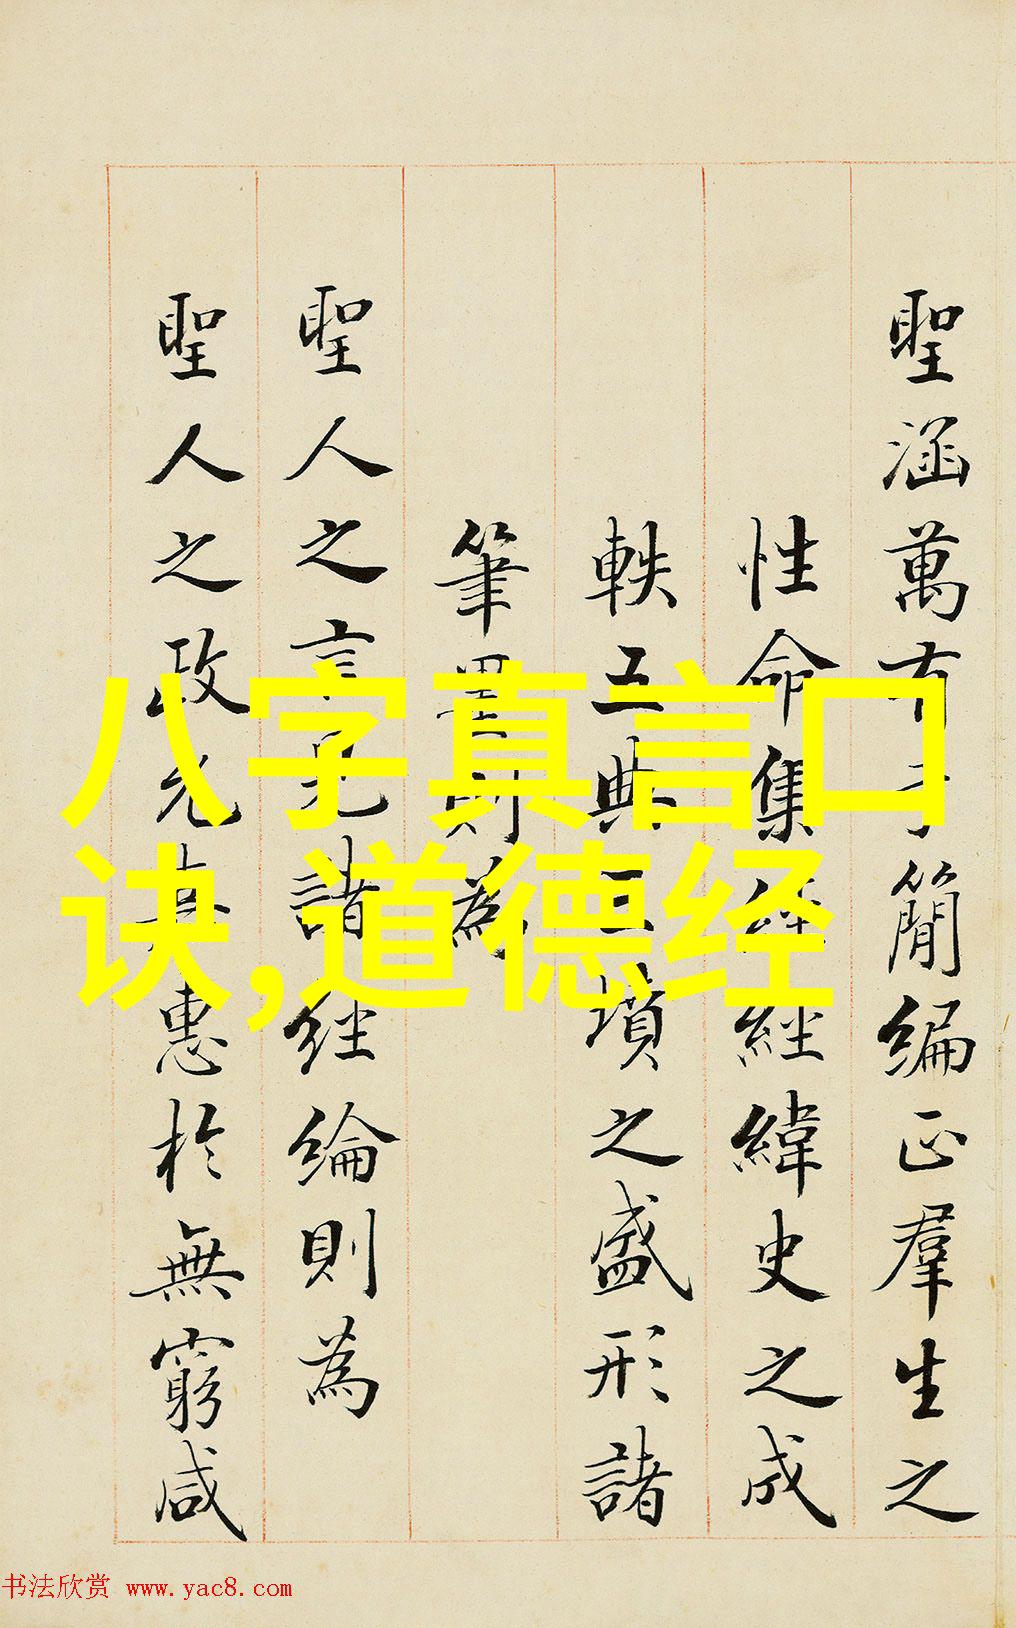 聖涵萬有於簡編正羣生之
性命集經緯史之成
軼五典三墳之盛形諸
筆墨則為
聖人之言見諸經綸則為
聖人之政允矣惠於無窮咸
八字真言口
诀,道德经
书法欣赏 www.yac8.com